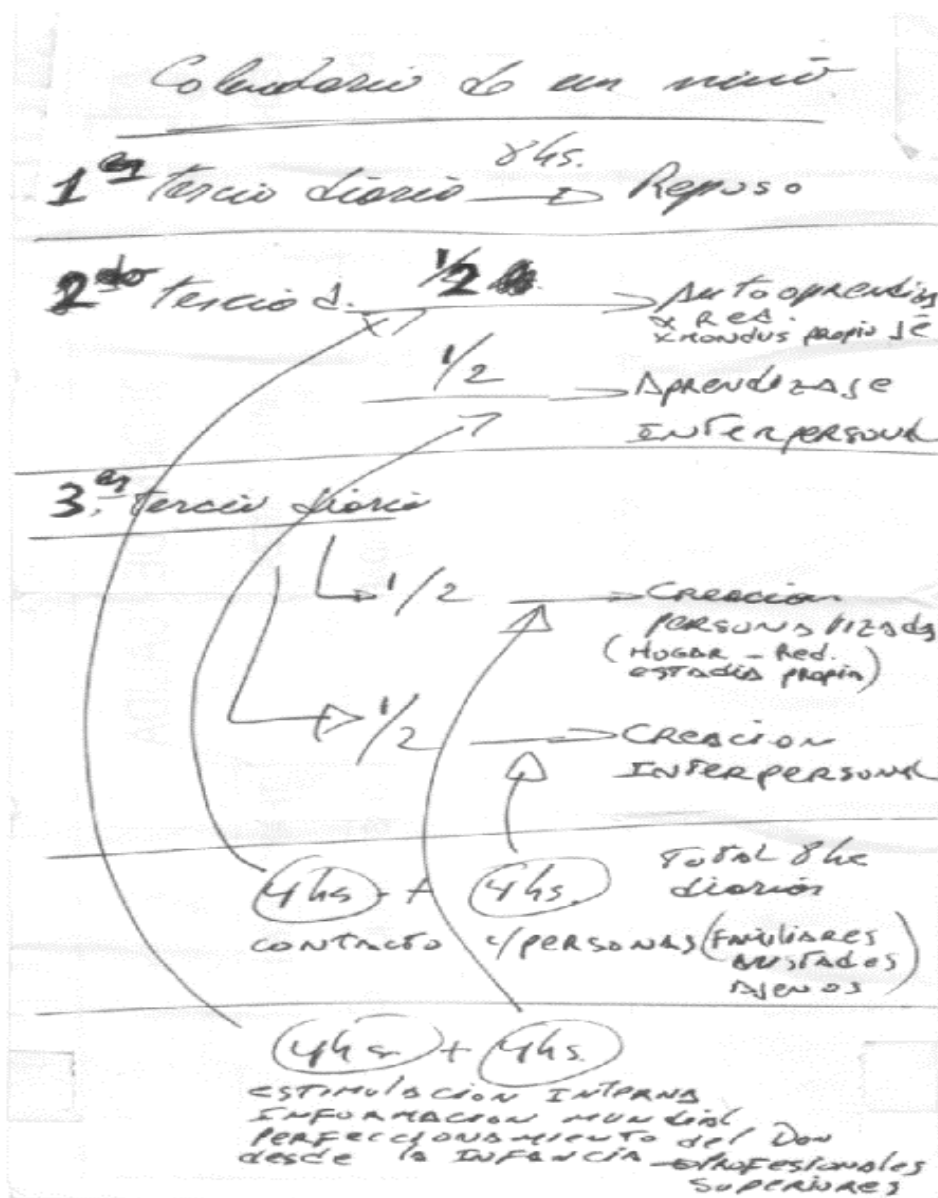 Calendario de un niño
8 hs.
1er tercio diario → Reposo
2do tercio d. 1/2 → Autoaprendizaj
x Red.
x mondus propio
1/2 → Aprendizaje
Interpersonal
3.er tercio diario
1/2 → Creacion
personalizada
(Hogar - Red.
estadía propia)
1/2 → Creacion
Interpersonal
4 hs. + 4 hs. Total 8 hs
diarias
contacto c/personas (familiares
amistades
ajenos)
4 hs. + 4 hs.
estimulacion interna
informacion mundial
perfeccionamiento del Don
desde la infancia → profesionales
superiores